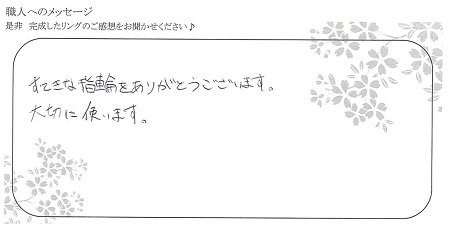 職人へのメッセージ
是非 完成したリングのご感想をお聞かせください♪
すてきな指輪をありがとうございます。
大切に使います。